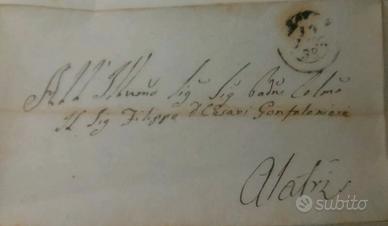 All' Illmo Sig Sig Padne Colmo
Il Sig Filippo d Cesari Gonfaloniere
Alatri
subito